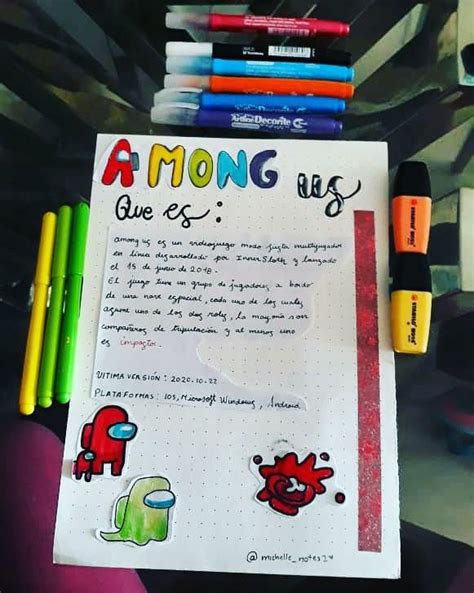 Artline Decorite
Artline Decorite
AMONG us
Que es:
Among us es un videojuego modo fiesta multijugador
en línea desarrollado por InnerSloth y lanzado
el 15 de junio de 2018.
El juego tiene un grupo de jugadores, a bordo
de una nave espacial, cada uno de los cuales
asume uno de los dos roles, la mayoria son
compañeros de tripulación y al menos uno
es impostor.
UltIMA VERSIÓN: 2020.10.22
PLATAFORMAS: IOS, Microsoft Windows, Android
STABILO BOSS
STABILO BOSS
@michelle_notes24